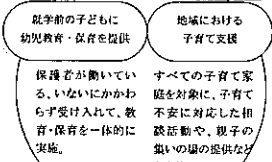 就学前の子どもに
幼児教育・保育を提供
保護者が働いてい
る、いないにかかわ
らず受け入れて、教
育・保育を一体的に
実施。
地域における
子育て支援
すべての子育て家
庭を対象に、子育て
不安に対応した相
談活動や、親子の
集いの場の提供など